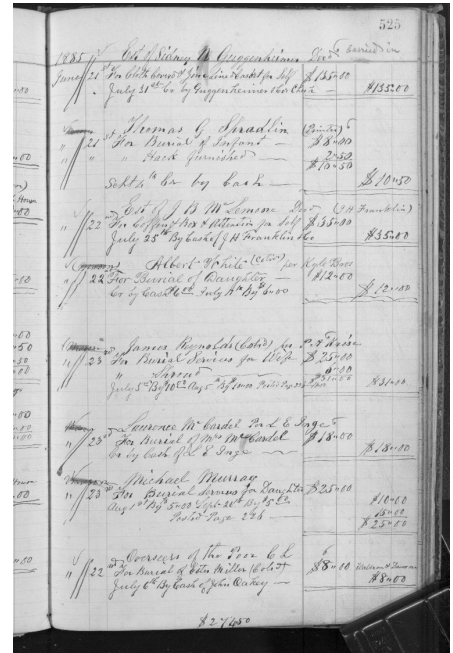 525
1885 Est of Sidney M Guggenheimer Dr To Carried in
June 21st For Cloth Covered Zinc Lined Casket for Self $135.00
July 31st Cr by Guggenheimer Check $135.00
Thomas G Spradlin
" 21st For Burial of Infant $8.00
" " Hack furnished 2.50
$10.50
Sept 4th Cr by Cash $10.50
Est of J B McLemore Dr (J H Franklin)
" 22nd For Coffin & Box & Attention for Self $35.00
July 25th By Cash of J H Franklin & Co $35.00
Albert White (Col'd) per Kyle Bros
" 22 For Burial of Daughter $12.00
Cr by Cash 6.00 July By $6.00 $12.00
James Reynolds (Col'd) per P A Krise
" 23rd For Burial Services for Wife $25.00
" Shroud 6.00
$31.00
$31.00
Laurence McCardel Per L E Page
" 23rd For Burial of Mrs McCardel $18.00
Cr by Cash of L E Page $18.00
Michael Murray
" 23rd For Burial Services for Daughter $25.00
Aug 1st By $5.00 Sept 24th By $5.00 $10.00
Posted Page 224 15.00
$25.00
Overseers of the Poor C L
" 22nd For Burial of Etta Miller (Col'd) $8.00
July 6th By Cash of John Oakey $8.00
$274.50